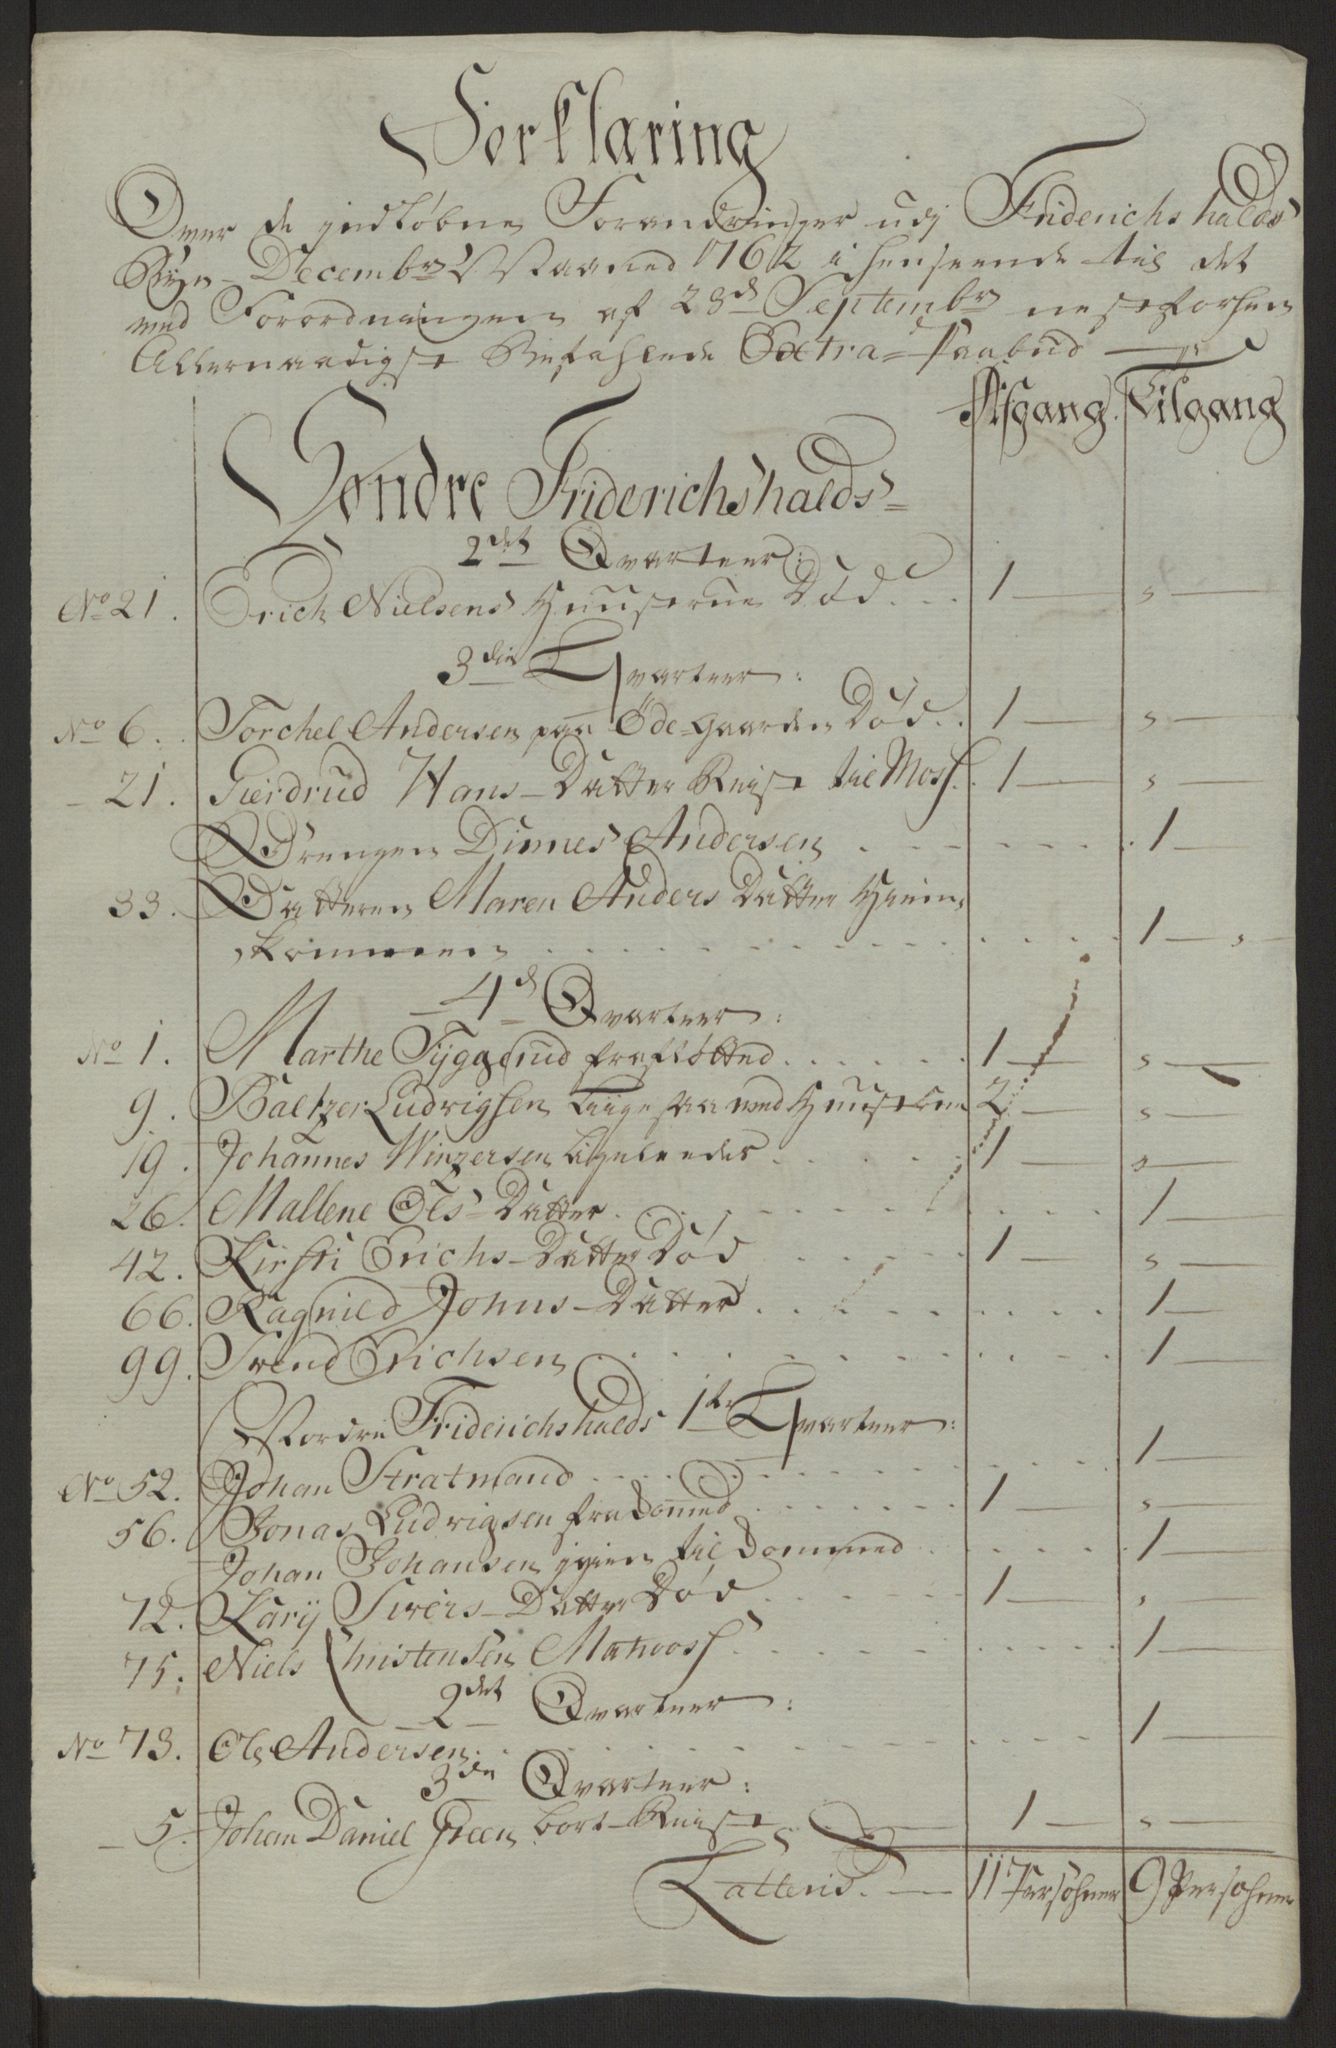 Forklaring
Over de indløbne Forandringer udj Friderichshalds
Byn Decembr Maaned 1762 i henseende til det
ved Forordningen af 28de Septembr nestforhen
Allernaadigst Befahlede Extra-Paabud
Afgang. Tilgang
Søndre Friderichshalds
2det Qvarteer:
No 21. Erich Nielsens Huuskone Død 1 "
3die Qvarteer:
No 6. Torchel Andersen paa Ödegaarden Død 1 "
- 21. Gierdrud Hans-Datter Reist til Moss. 1 "
Drengen Dinnes Andersen 1
33. Datteren Maren Anders Datter Hiem
kommen 1 "
4de Qvarteer:
No 1. Marthe Tyggerud frafløtted 1 "
9. Baltzer Ludvigsen liigesaa med Huuskone 2 "
19. Johannes Winzersen ligeledes 1 "
26. Mallene Ols-Datter 1
42. Kirsti Erichs-Datter Død 1 "
66. Ragnild Johns-Datter 1
99. Svend Erichsen 1
Nordre Friderichshalds 1te Qvarteer:
No 52. Johan Stratmand 1
56. Jonas Ludvigsen fra Domed 1 "
Johan Johansen igien til Dommed 1
72. Karij Sivers-Datter Død 1 "
75. Niels Christensen Matross 1
2det Qvarteer:
No 73. Ole Andersen 1
3die Qvarteer:
- 5. Johan Daniel Green bort-Reist 1 "
Latteris. 11 Persohner 9 Persohner